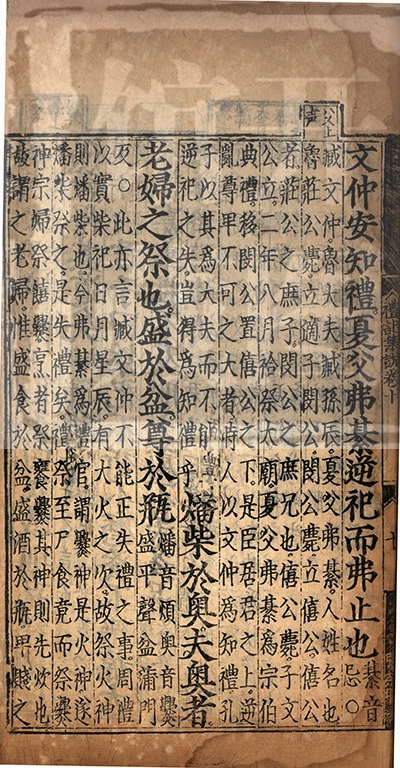 禮記集說卷十
父上
声
文仲安知禮。夏父弗綦逆祀而弗止也綦音
忌○
臧文仲。魯大夫臧孫辰。夏父弗綦。人姓名也
魯莊公薨立適子閔公。閔公薨立僖公。僖公
者。莊公之庶子。閔公之庶兄也。僖公薨。子文
公立。二年八月祫祭太廟。夏父弗綦為宗伯
典禮。移閔公置僖公之下。是臣居君之上。逆
亂尊卑不可之大者。時人以文仲為知禮。孔
子以其為大夫而不能
逆祀之失。豈得為知禮乎
燔柴於奧夫奧者
老婦之祭也。盛於盆尊於瓶
燔音煩奧音爨
盛平聲盆蒲門
反。○此亦言臧文仲不能正失禮之事。周禮
以實柴祀日月星辰。有大火之次。故祭火神
則燔柴也。今弗綦為禮官。謂爨神是火神。遂
燔柴祭之。是失禮矣。禮祭至尸食竟而祭爨
神。宗婦祭饎爨。亨者祭饔爨。其神則先炊也
故謂之老婦。惟盛食於盆。盛酒於瓶。卑賤之